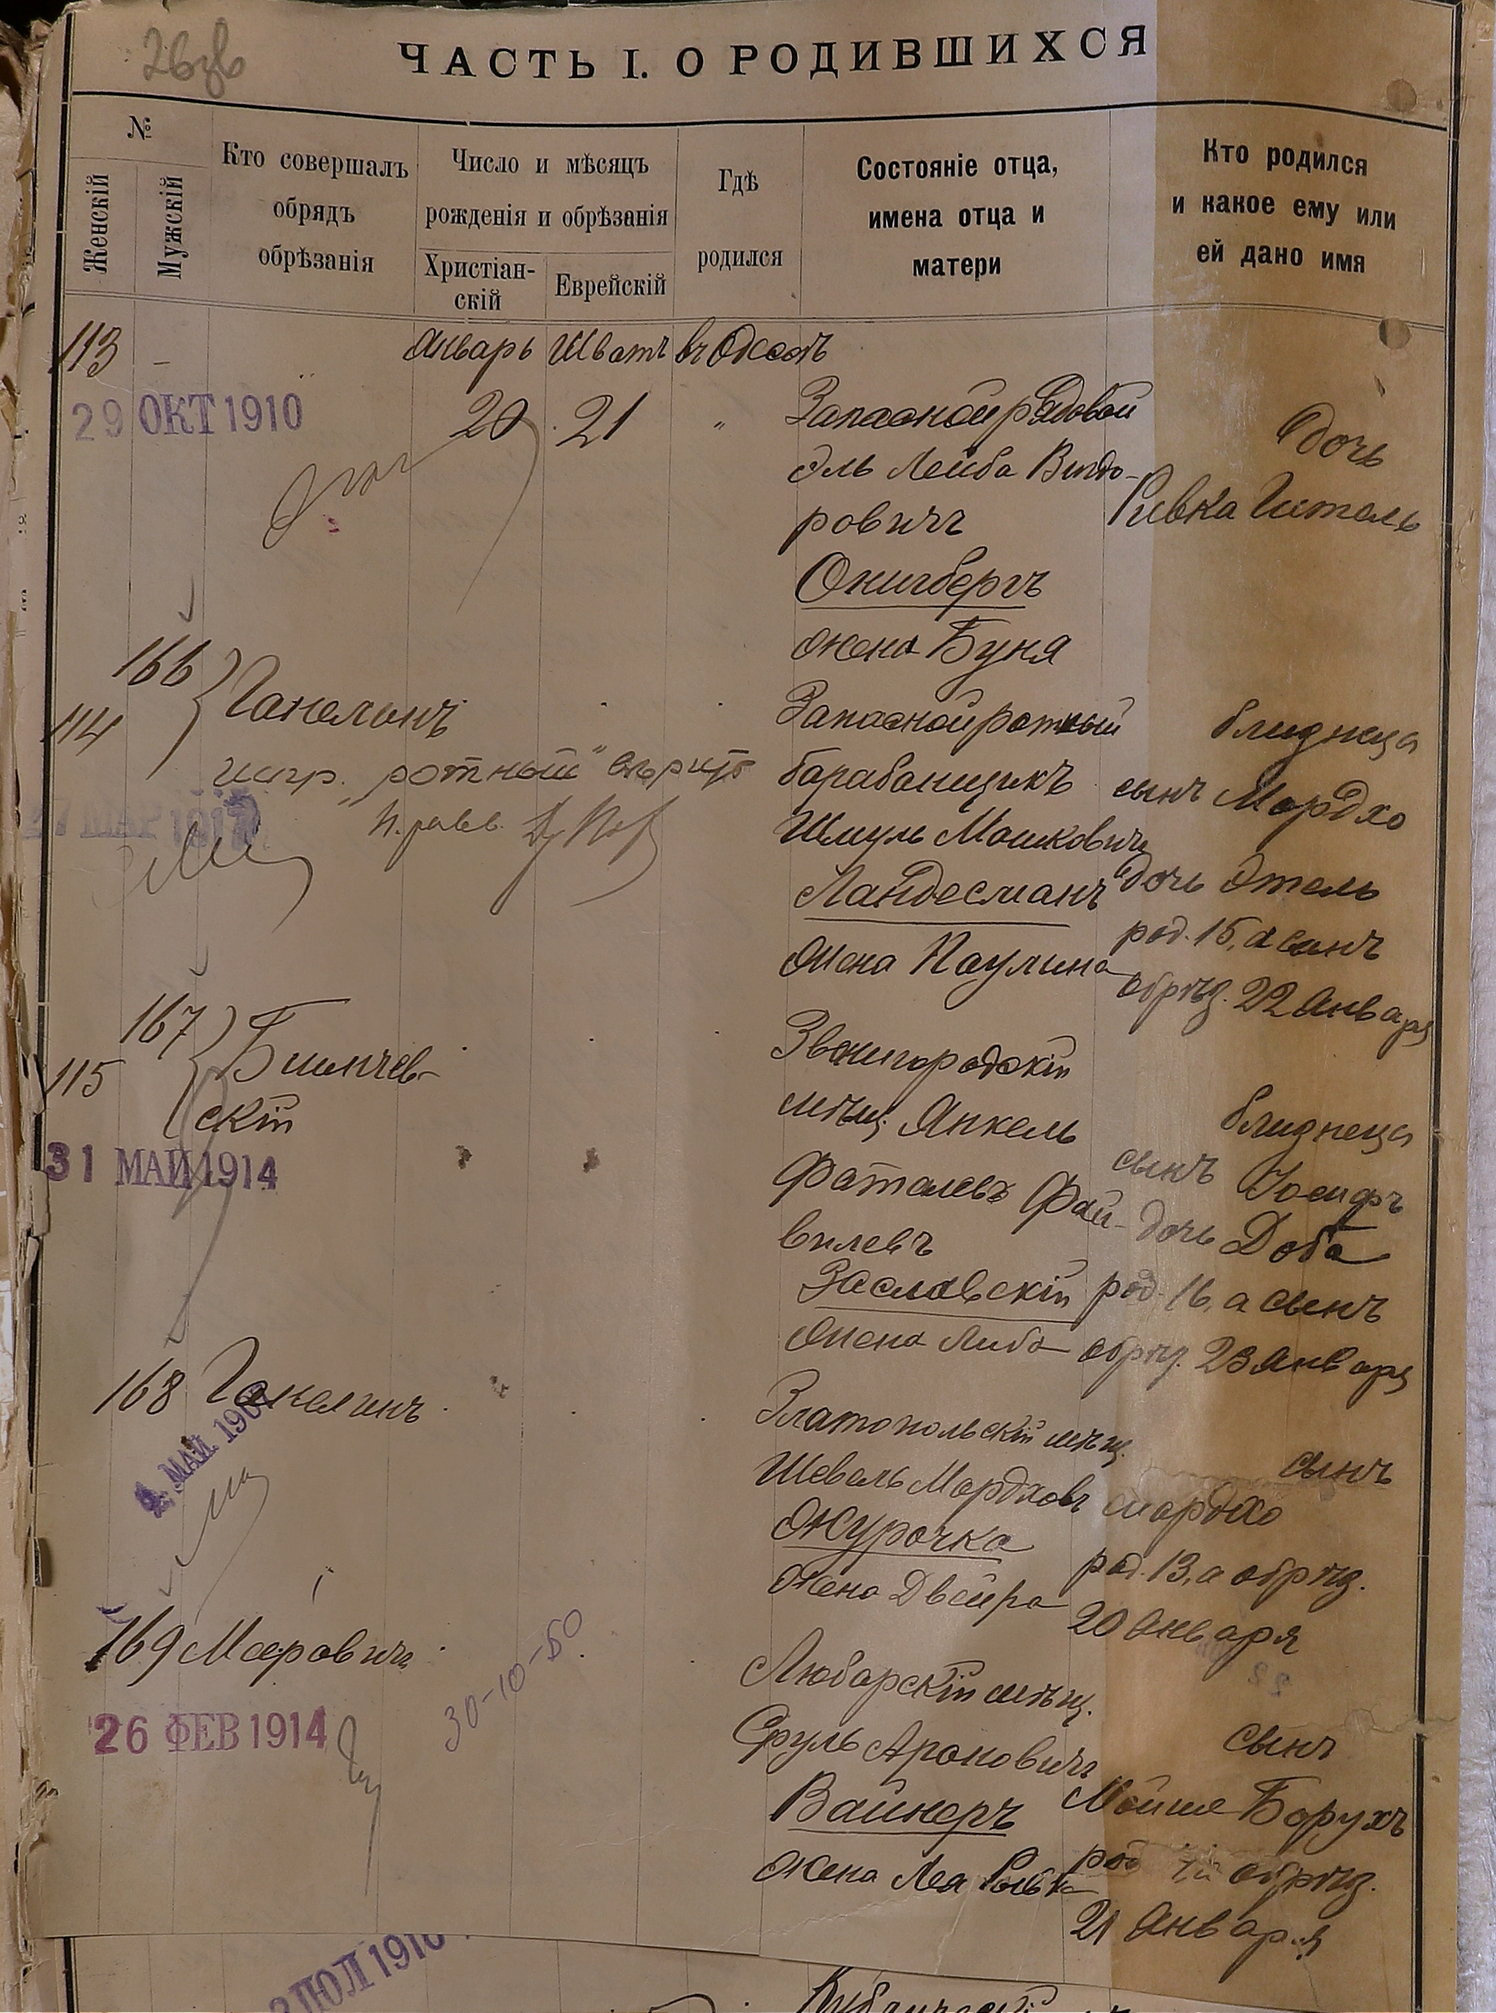 26
ЧАСТЬ I. О РОДИВШИХСЯ
№
Женскій
Мужскій
Кто совершалъ
обрядъ
обрѣзанія
Число и мѣсяцъ
рожденія и обрѣзанія
Христіан-
скій
Еврейскій
Гдѣ
родился
Состояніе отца,
имена отца и
матери
Кто родился
и какое ему или
ей дано имя
113 – Январь Шватъ въ Одессѣ
29 ОКТ 1910
20 21 "
Запасной рядовой
Эль Лейба Вигдо-
ровичъ
Онигбергъ
жена Буня
дочь
Ривка Гитель
166
114
Ганелинъ
испр. "ротный" вѣрить
И. равв.
МАР
Запасной ротный
барабанщикъ
Шмуль Мошковичъ
Ландесманъ
жена Паулина
близнеца
сынъ Мордхо
дочь Этель
род. 15, а сынъ
обрѣз. 22 Января
167
115
Бишчев-
скій
31 МАЙ 1914
Звенигородскій
мѣщ. Янкель
Фаталевъ Фай-
вилевъ
Заславскій
жена Либа
близнеца
сынъ Іосифъ
дочь Доба
род. 16, а сынъ
обрѣз. 23 Января
168 Ганелинъ
МАЙ 190
Златопольскій мѣщ.
Шевель Мордховъ
Журочка
жена Двейра
сынъ
Мордхо
род. 13, а обрѣз.
20 Января
169 Маеровичъ
26 ФЕВ 1914
30-10-50
Любарскій мѣщ.
Сруль Ароновичъ
Вайнеръ
жена Леа Ривка
сынъ
Мойше Борухъ
род обрѣз.
21 Января
ІЮЛ 1910